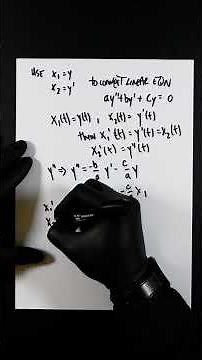 USE x₁ = y to convert LINEAR EQN
x₂ = y' ay'' + by' + cy = 0
x₁(t) = y(t), x₂(t) = y'(t)
then x₁'(t) = y'(t) = x₂(t)
x₂'(t) = y''(t)
y'' ⇒ y'' = -b/a y' - c/a y
c/a x₁
x₁'